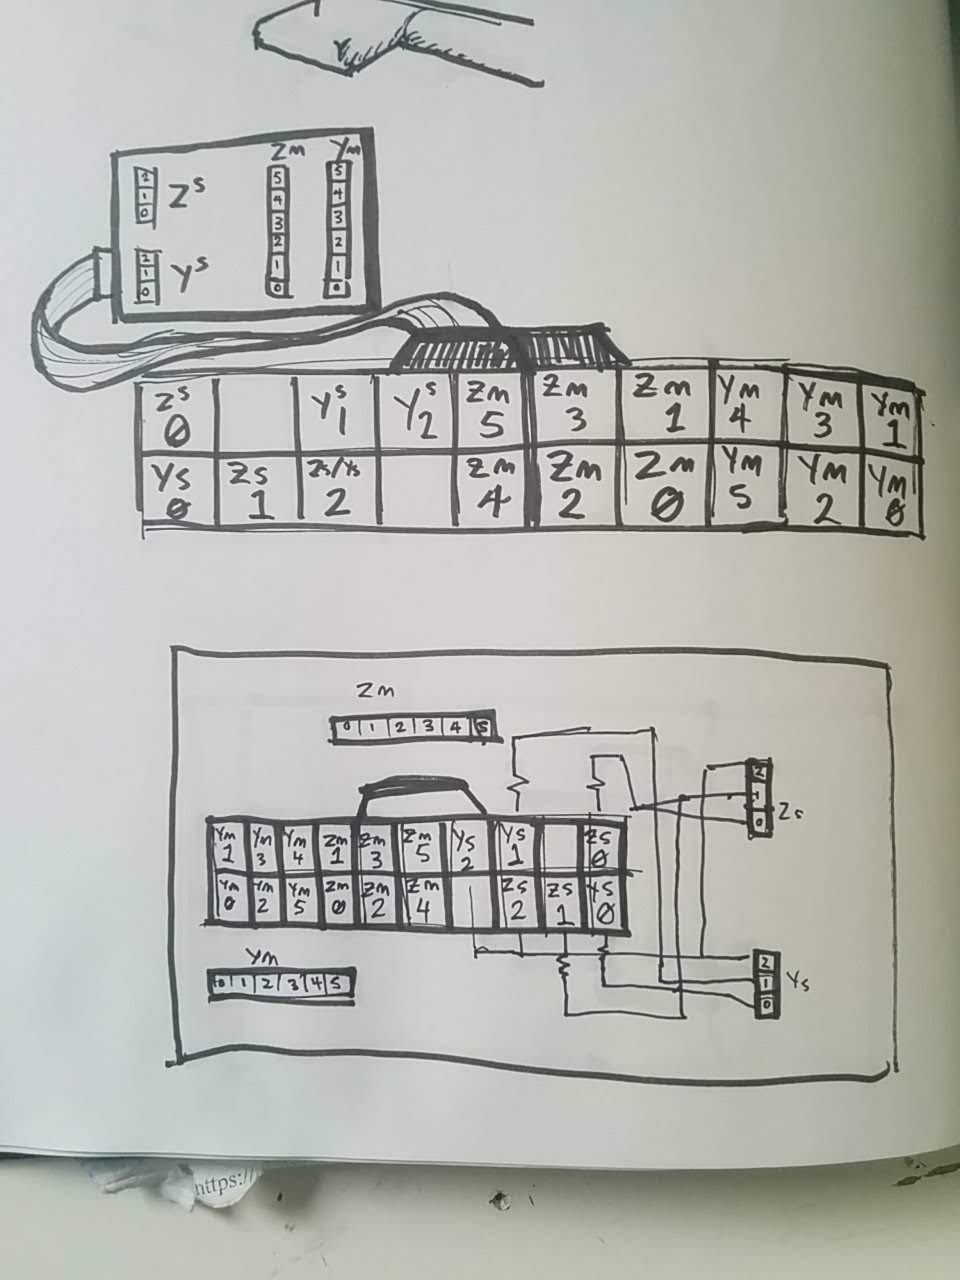 Zm Ym
2 1 0 Zs
5 4 3 2 1 0
5 4 3 2 1 0
2 1 0 Ys
Zs 0 Ys 1 Ys 2 Zm 5 Zm 3 Zm 1 Ym 4 Ym 3 Ym 1
Ys 0 Zs 1 Zs/Ys 2 Zm 4 Zm 2 Zm 0 Ym 5 Ym 2 Ym 0
Zm
0 1 2 3 4 5
2 1 0 Zs
Ym 1 Ym 3 Ym 4 Zm 1 Zm 3 Zm 5 Ys 2 Ys 1 Zs 0
Ym 0 Ym 2 Ym 5 Zm 0 Zm 2 Zm 4 Zs 2 Zs 1 Ys 0
Ym
0 1 2 3 4 5
2 1 0 Ys
https:/